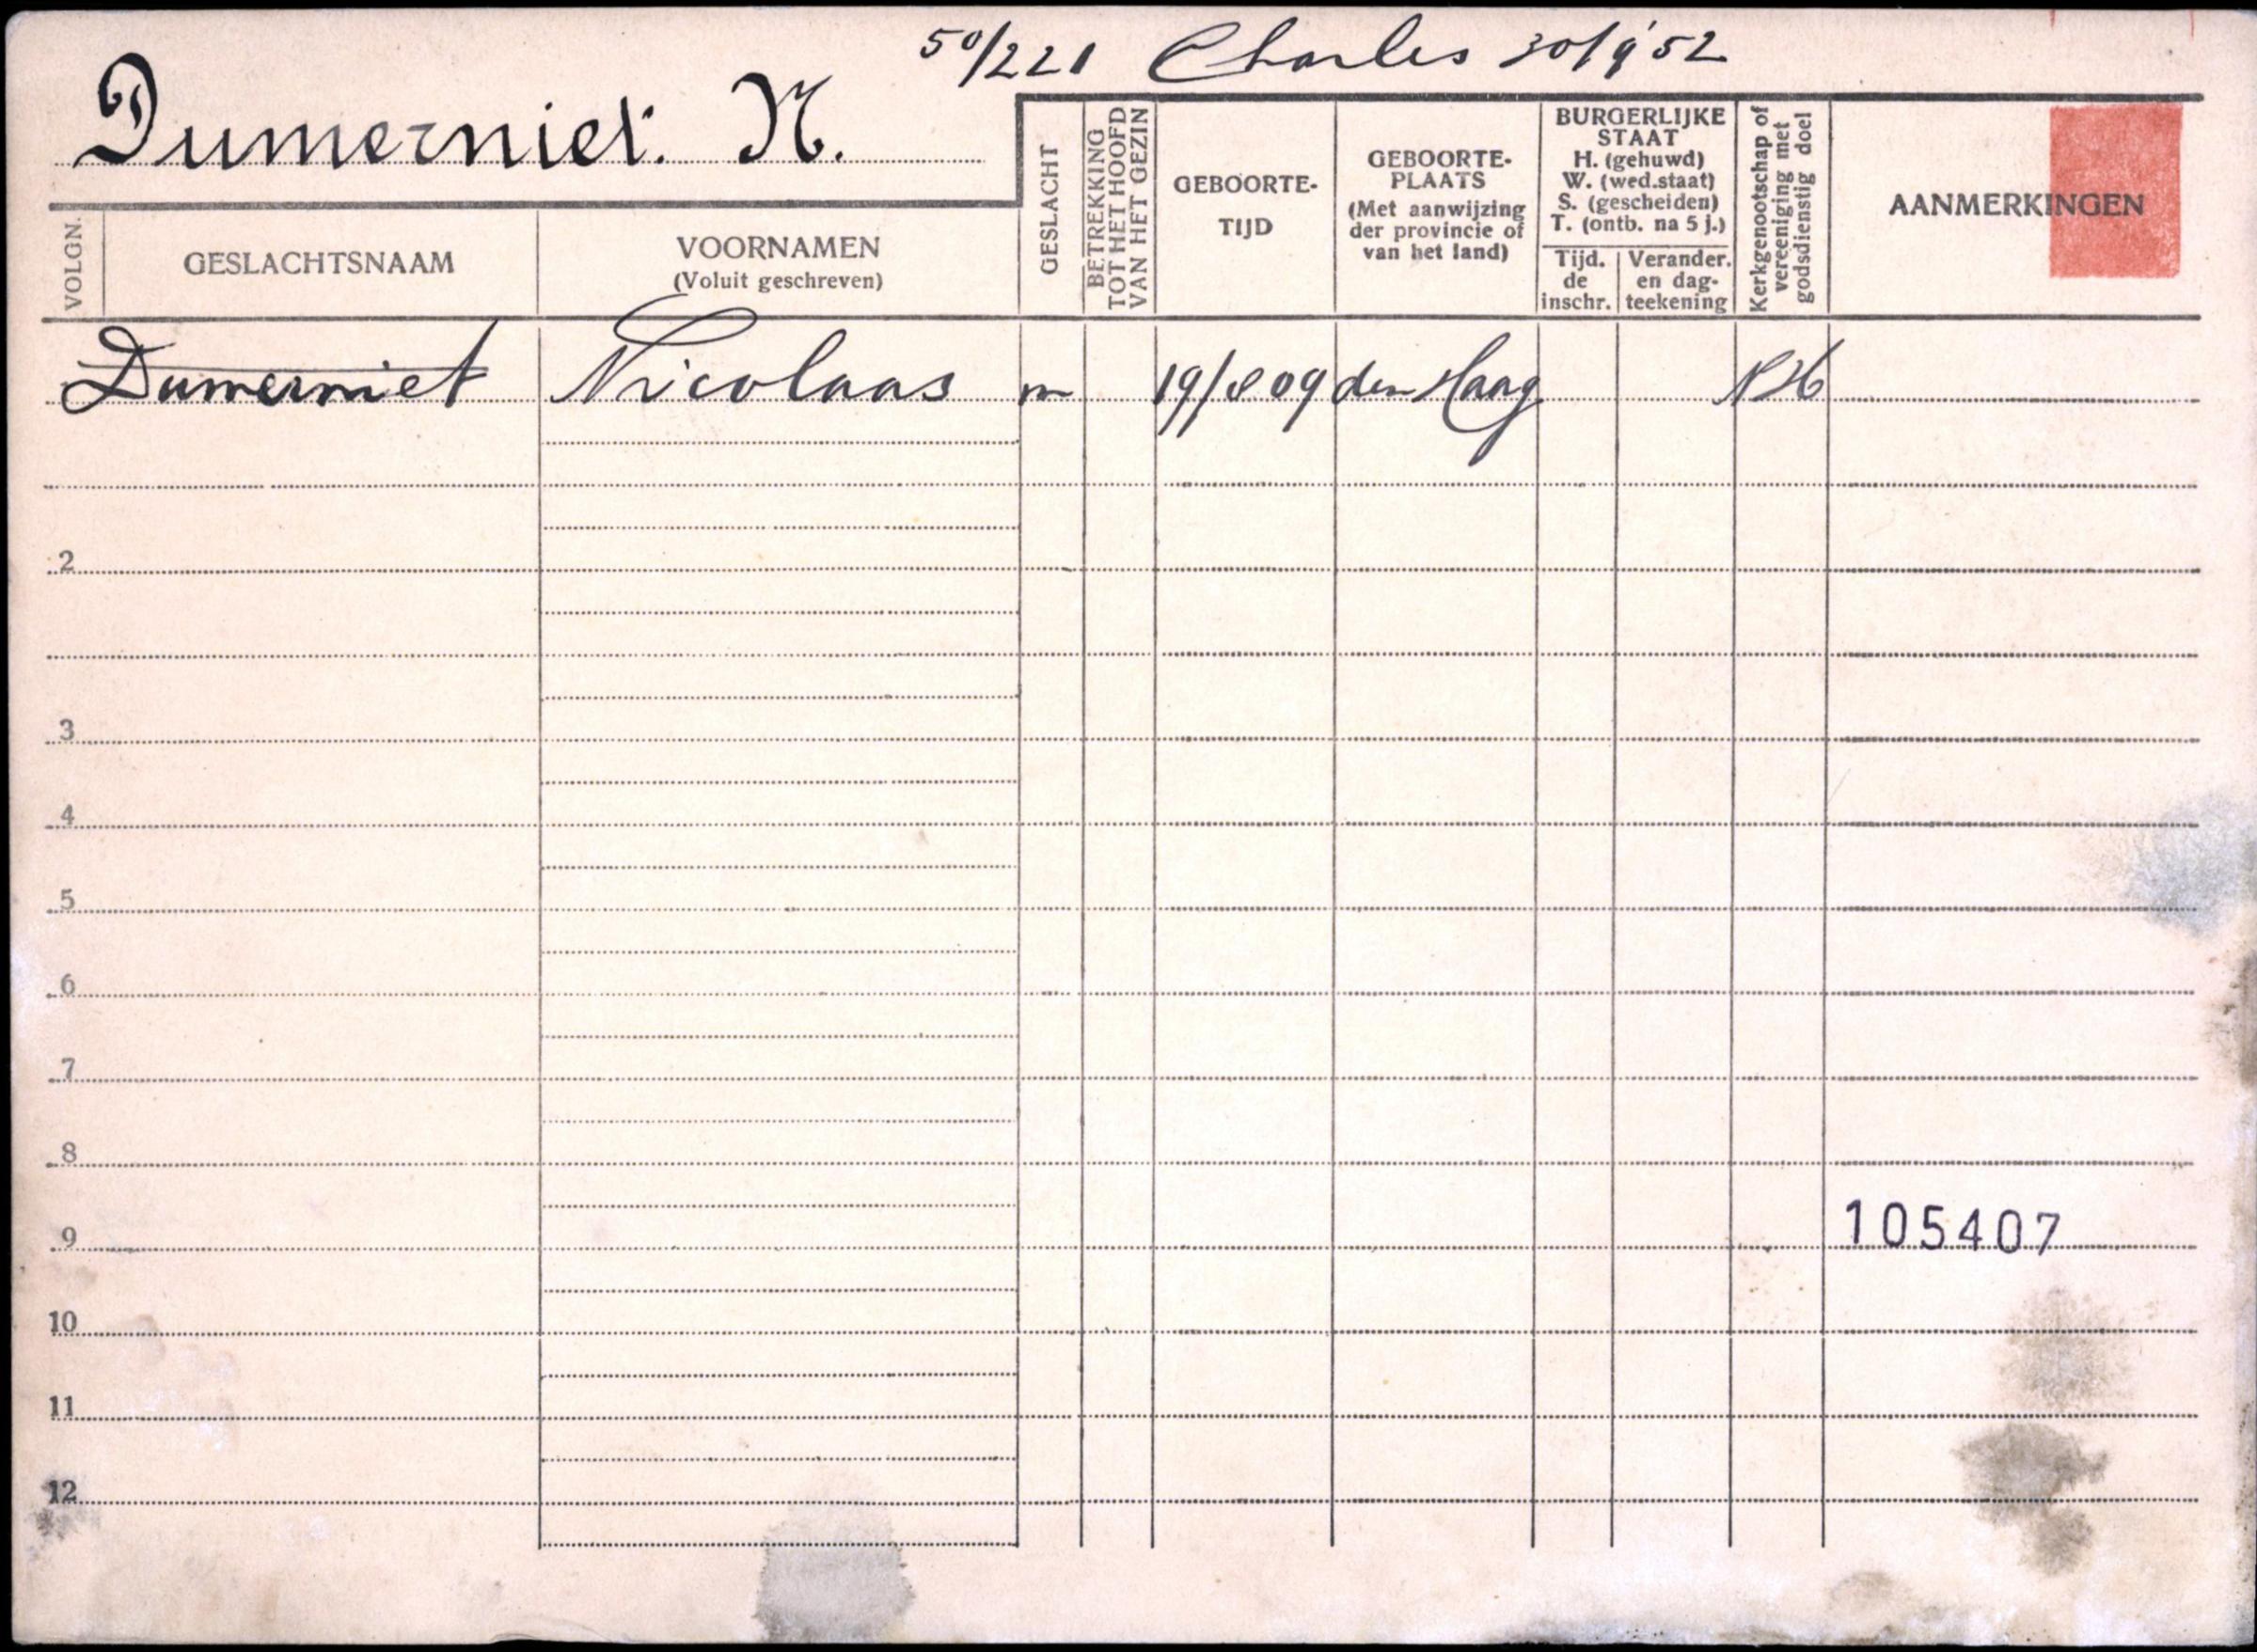 50/221 Charles 30/9'52
Dumerniet. N.
VOLGN.
GESLACHTSNAAM
VOORNAMEN
(Voluit geschreven)
GESLACHT
BETREKKING
TOT HET HOOFD
VAN HET GEZIN
GEBOORTE-
TIJD
GEBOORTE-
PLAATS
(Met aanwijzing
der provincie of
van het land)
BURGERLIJKE
STAAT
H. (gehuwd)
W. (wed.staat)
S. (gescheiden)
T. (ontb. na 5 j.)
Tijd.
de
inschr.
Verander.
en dag-
teekening
Kerkgenootschap of
vereeniging met
godsdienstig doel
AANMERKINGEN
Dumerniet Nicolaas m 19/8 09 den Haag NH
2
3
4
5
6
7
8
9 105407
10
11
12